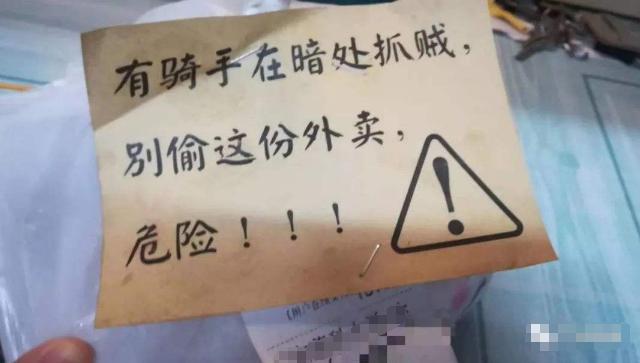 有骑手在暗处抓贼，
别偷这份外卖，
危险！！！